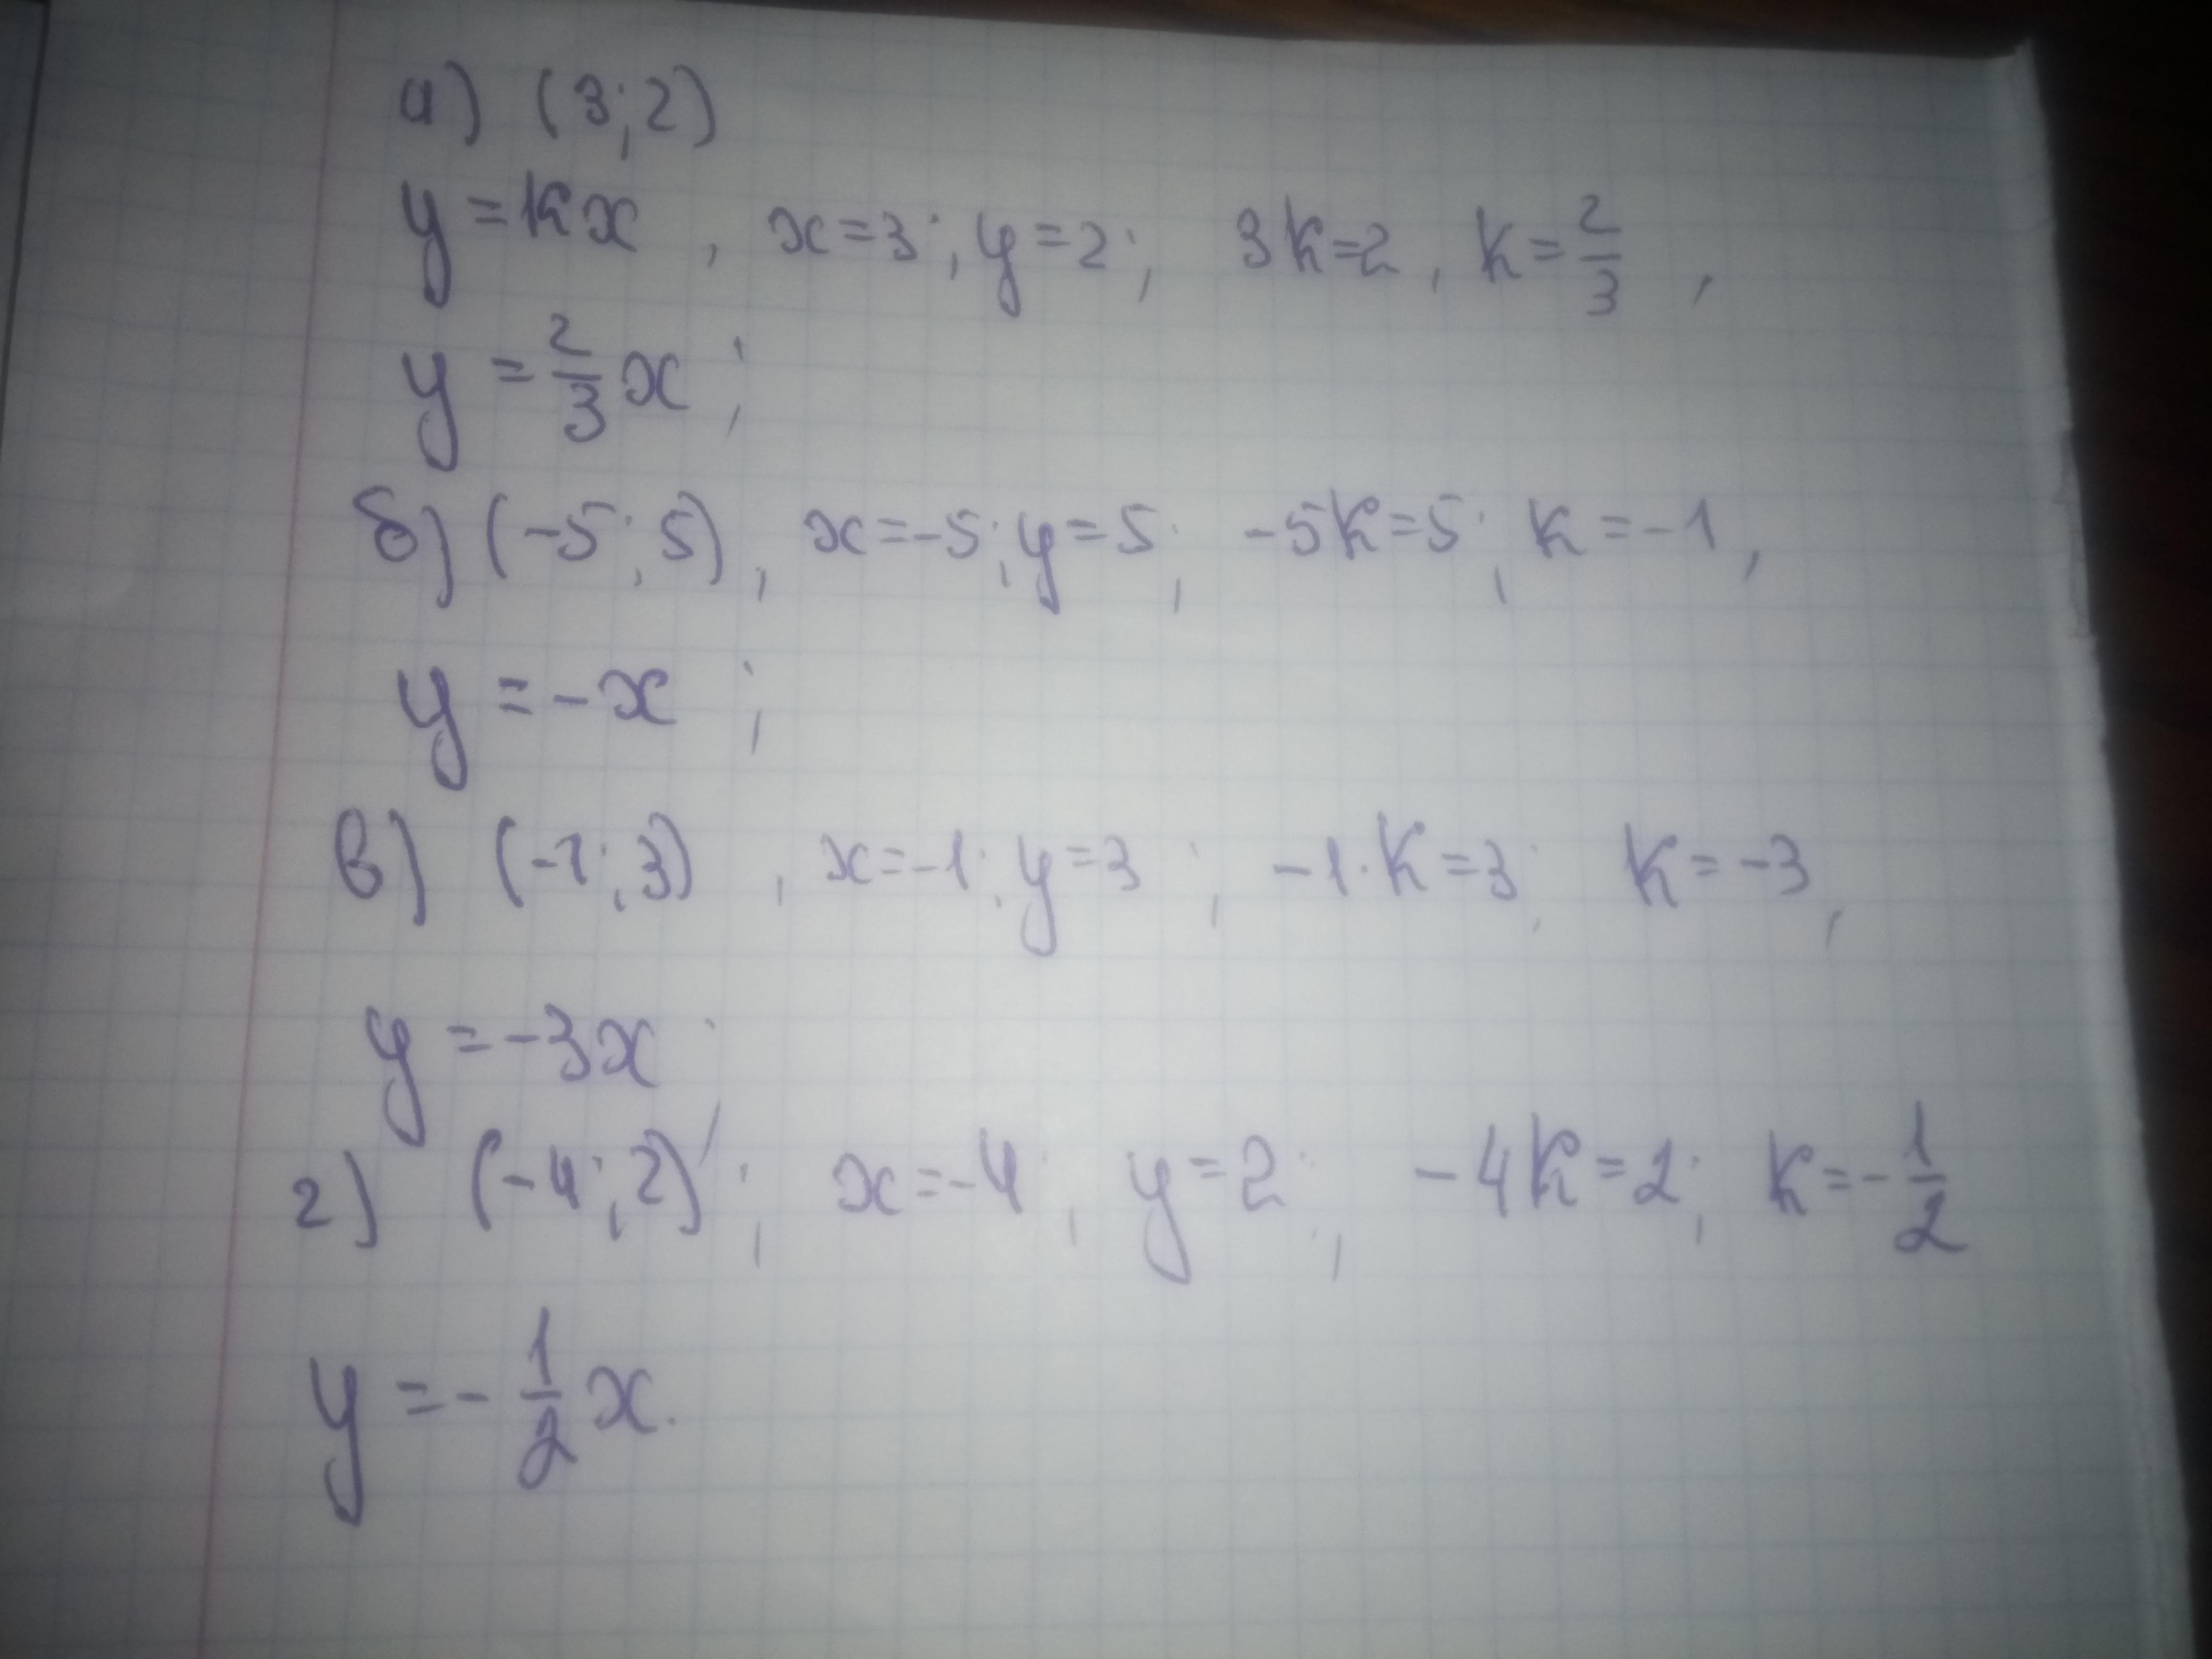 а) (3; 2)
y = kx, x = 3; y = 2; 3k = 2, k = 2/3,
y = 2/3 x;
б) (-5; 5), x = -5; y = 5; -5k = 5; k = -1,
y = -x;
в) (-1; 3), x = -1; y = 3; -1·k = 3; k = -3,
y = -3x;
г) (-4; 2); x = -4; y = 2; -4k = 2; k = -1/2
y = -1/2 x.